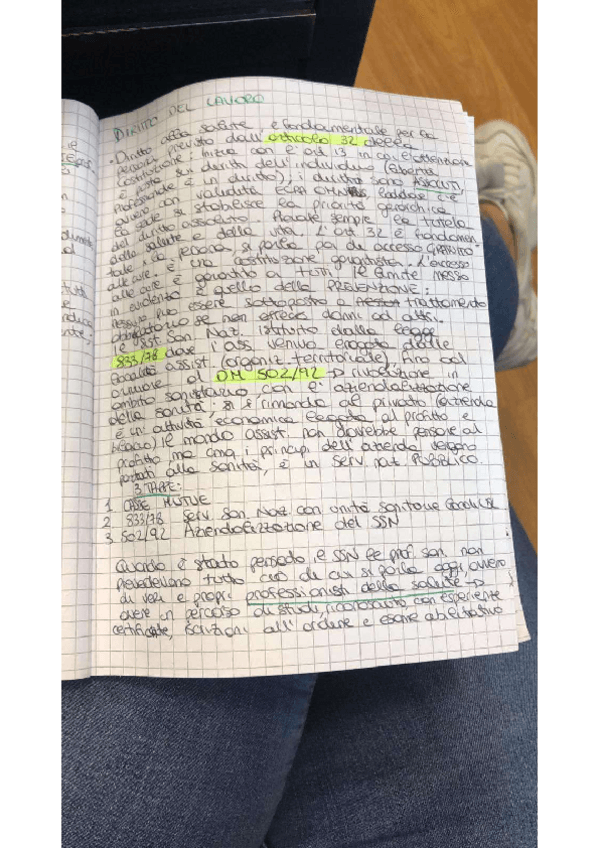 DIRITTO DEL LAVORO
• Diritto alla salute, è fondamentale per la
persona previsto dall'articolo 32 della
Costituzione: Inizia con l'art 13 in cui l'attenzione
è posta sui diritti dell'individuo (libertà
professionale è un diritto), i diritti sono ASSOLUTI,
ovvero con validità ERGA OMNES, laddove c'è
la legge si stabilisce la priorità gerarchica
del diritto assoluto. Prevale sempre la tutela
della salute e della vita. L'art 32 è fondamen-
tale x la persona, si parla poi di accesso GRATUITO
alle cure. è una costituzione garantista. l'accesso
alle cure è garantito a tutti. Il limite messo
in evidenza è quello della PREVENZIONE:
nessuno può essere sottoposto a trattamento
obbligatorio se non arreca danni ad altri.
Il sist. San. Naz. istituito dalla legge
833/78 dove l'ass veniva erogata dalle
località assist. (organiz. territoriale). Fino ad
arrivare al DM 502/92 → rivoluzione in
ambito sanitario con l'aziendalizzazione
della sanità, si è rimando al privato (azienda
è un'attività economica legata al profitto e
lucro) Il mondo assist. non dovrebbe pensare al
profitto ma ora i principi dell'azienda vengono
portati alla sanità, è un serv. nat. PUBBLICO.
3 TAPPE:
1 CASSE MUTUE
2 833/78 Serv. San Naz con unità sanitarie locali USL
3 502/92 Aziendalizzazione del SSN
Quando è stato pensato il SSN le prof. san. non
prevedevano tutto ciò di cui si parla oggi ovvero
di veri e propri professionisti della salute →
avere un percorso di studi riconosciuto con esperienze
certificate, iscrizioni all'ordine e esame abilitativo